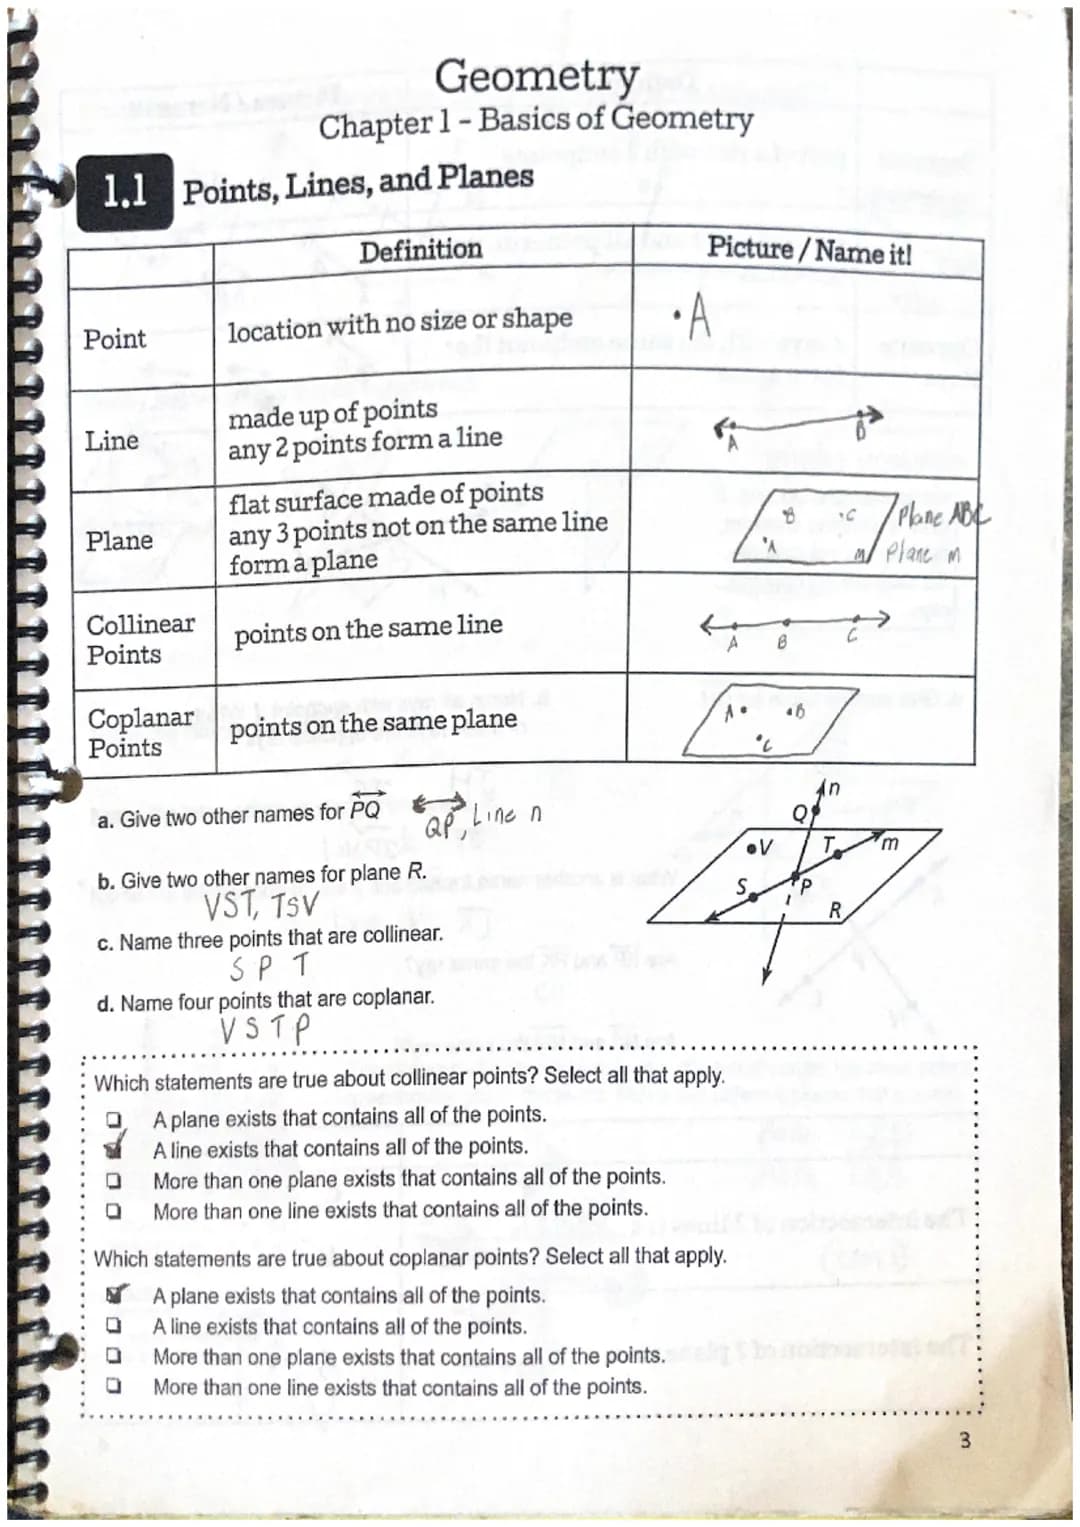 Geometry
Chapter 1 - Basics of Geometry
1.1 Points, Lines, and Planes
Definition
Picture / Name it!
Point
location with no size or shape
• A
Line
made up of points
any 2 points form a line
A
Plane
flat surface made of points
any 3 points not on the same line
form a plane
B
C
A
m
Plane ABC
Plane m
Collinear
Points
points on the same line
A B C
Coplanar
Points
points on the same plane
A
B
C
a. Give two other names for PQ QP, Line n
b. Give two other names for plane R.
VST, TSV
c. Name three points that are collinear.
S P T
d. Name four points that are coplanar.
V S T P
n
Q
V
T
m
S
P
R
Which statements are true about collinear points? Select all that apply.
A plane exists that contains all of the points.
A line exists that contains all of the points.
More than one plane exists that contains all of the points.
More than one line exists that contains all of the points.
Which statements are true about coplanar points? Select all that apply.
A plane exists that contains all of the points.
A line exists that contains all of the points.
More than one plane exists that contains all of the points.
More than one line exists that contains all of the points.
3